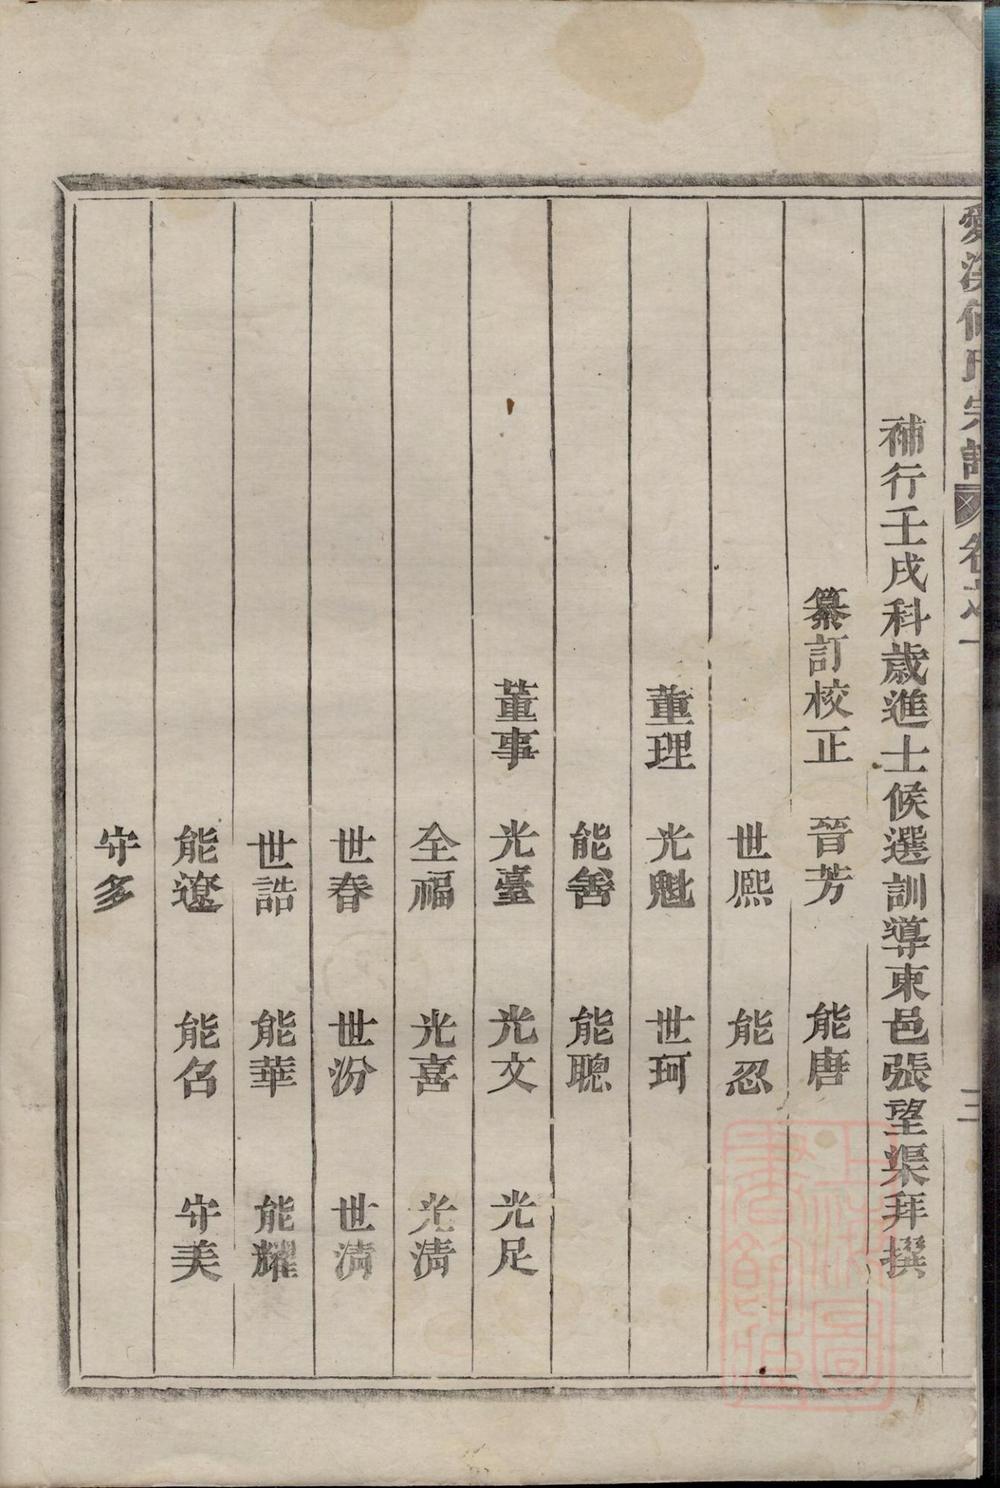 宗譜 卷之一
三
補行壬戌科歲進士候選訓導東邑張望渠拜撰
纂訂校正 晉芳 能唐
世熈 能忍
董理 光魁 世珂
能善 能聰
董事 光臺 光文 光足
全福 光喜 光淸
世春 世汾 世淸
世誥 能華 能耀
能遼 能名 守美
守多